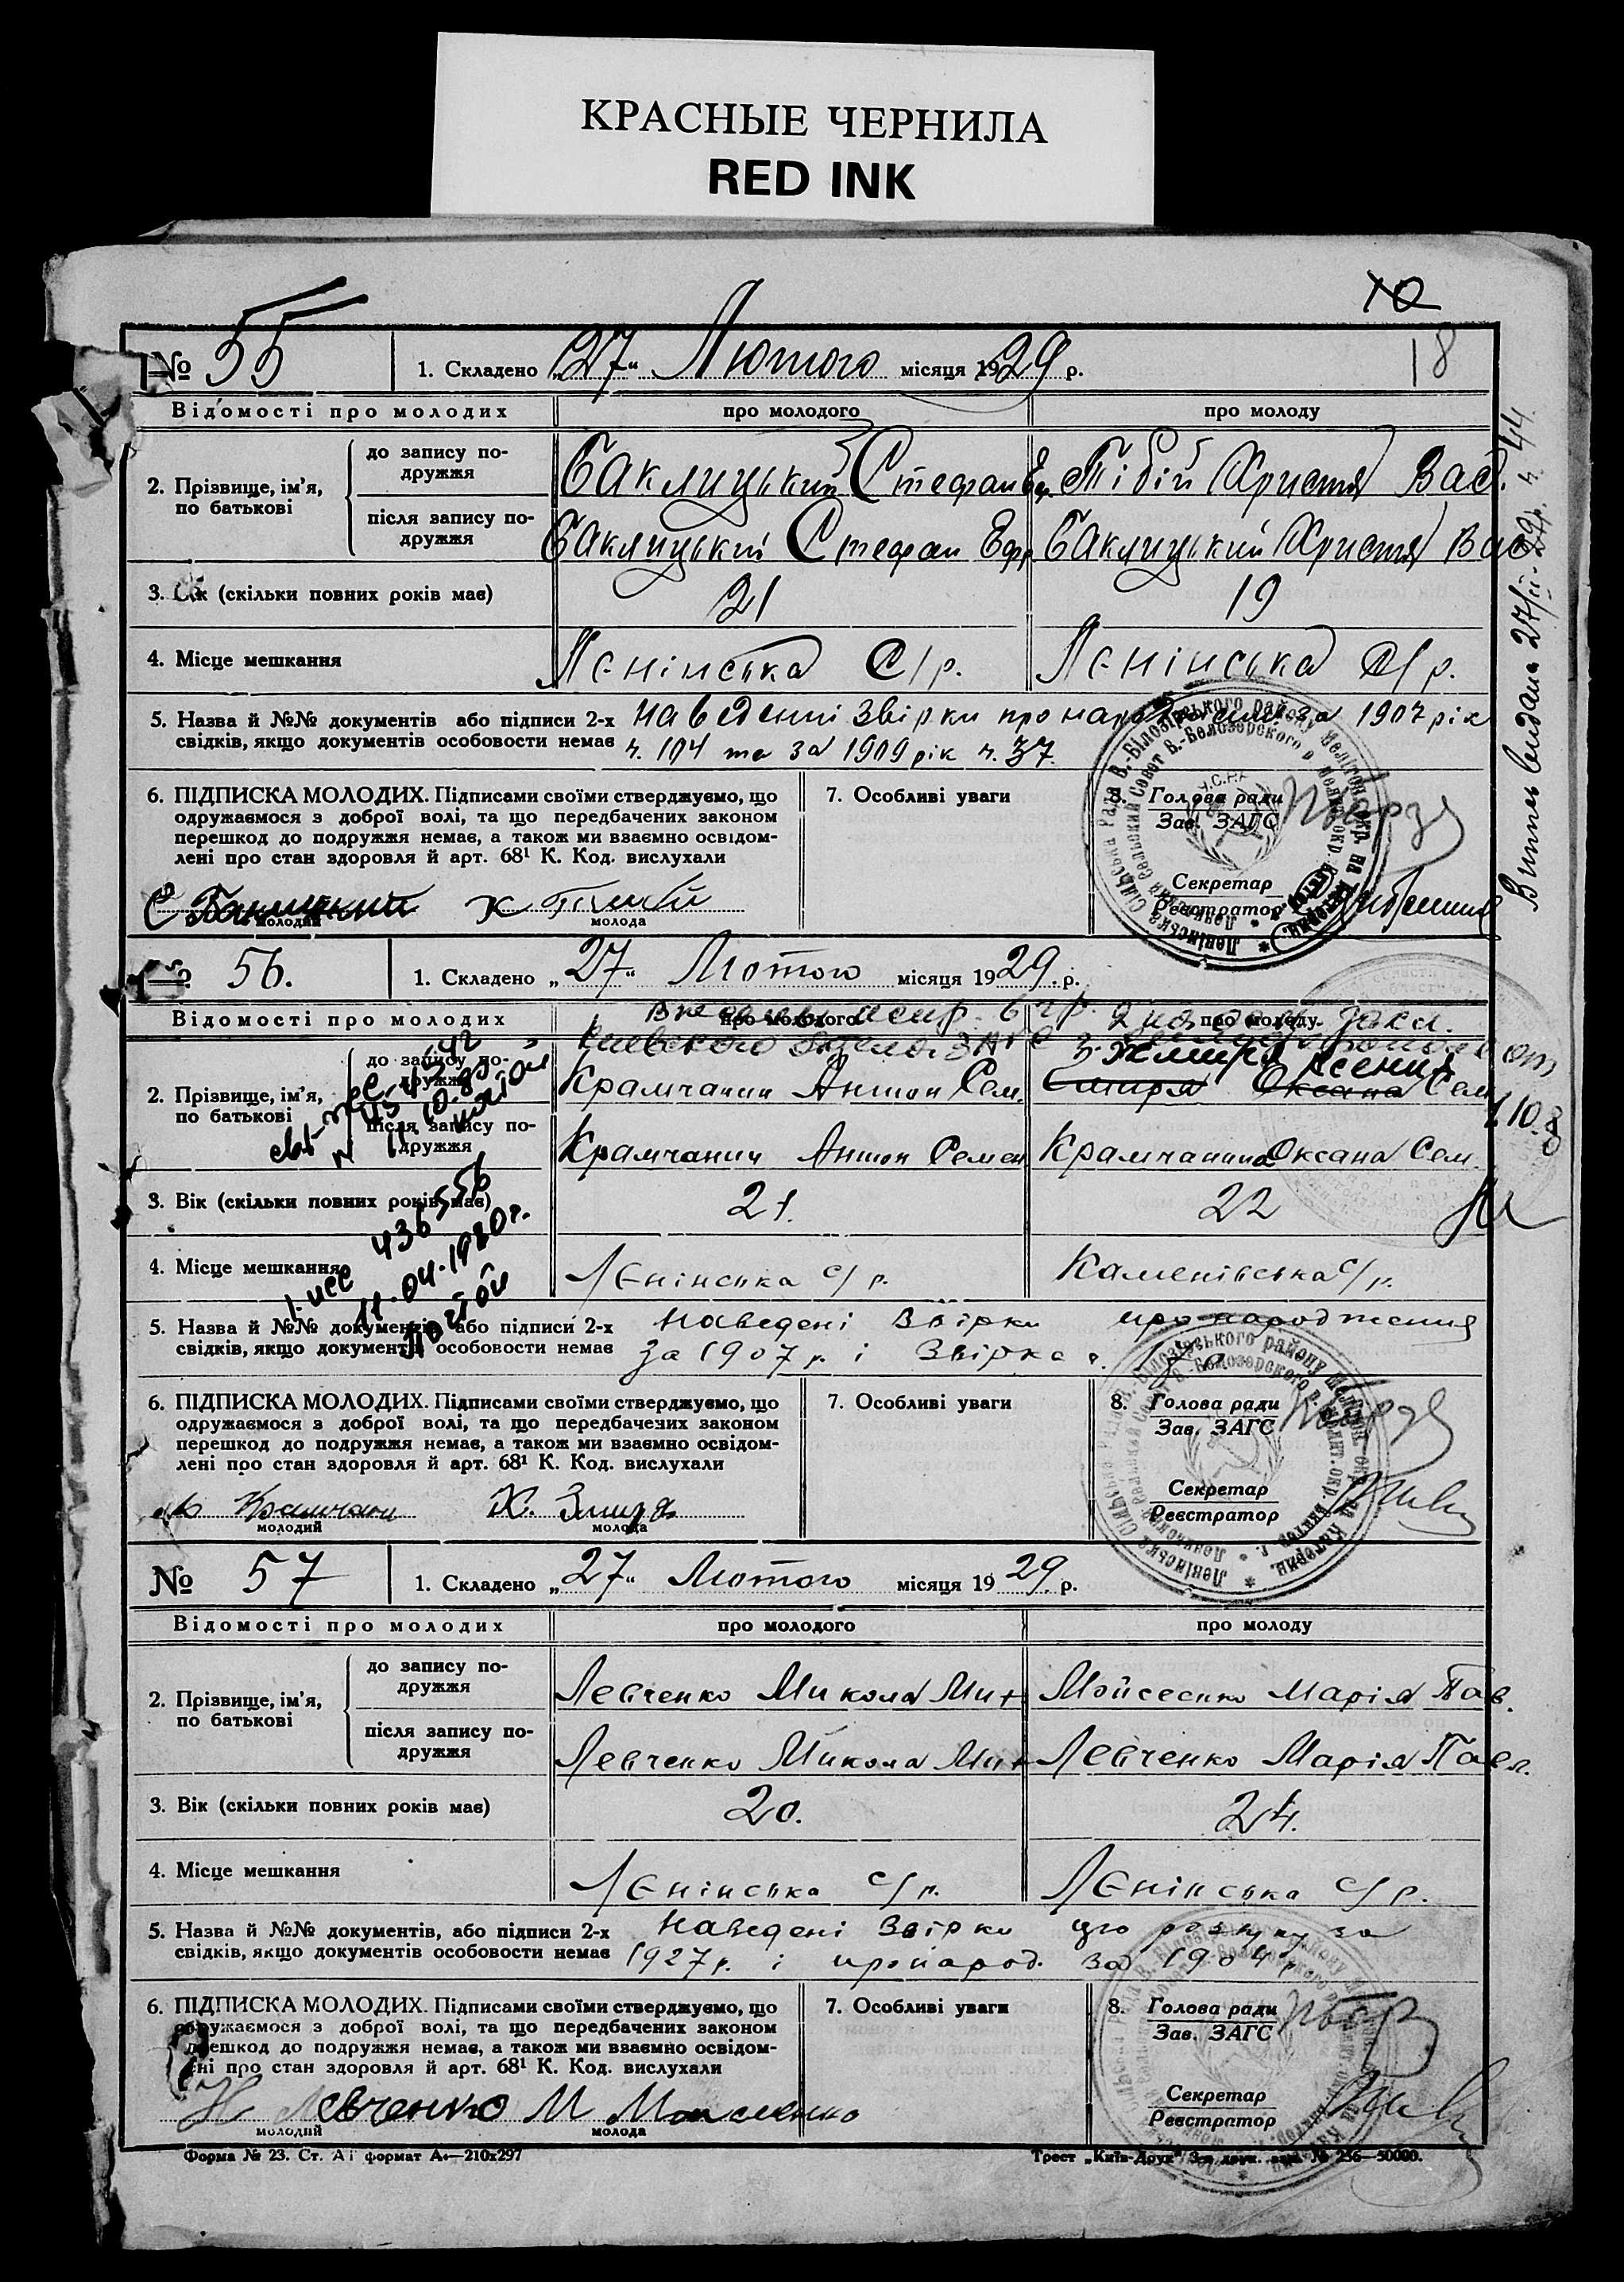 КРАСНЫЕ ЧЕРНИЛА
RED INK
10
18
№ 55 1. Складено „27“ Лютого місяця 1929 р.
Відомості про молодих про молодого про молоду
2. Прізвище, ім'я, по батькові
до запису подружжя Баклицький Стефан Еф. Бібій Христя Вас.
після запису подружжя Баклицький Стефан Ефр. Баклицький Христя Вас
3. Вік (скільки повних років має) 21 19
4. Місце мешкання Лєнінська С/р. Лєнінська С/р.
5. Назва й №№ документів або підписи 2-х наведенні звірки про народження за 1907 рік
свідків, якщо документів особовости немає ч. 104 та за 1909 рік ч. 37.
6. ПІДПИСКА МОЛОДИХ. Підписами своїми стверджуємо, що
одружаємося з доброї волі, та що передбачених законом
перешкод до подружжя немає, а також ми взаємно освідом-
лені про стан здоровля й арт. 68¹ К. Код. вислухали
7. Особливі уваги
8. Голова ради
Зав. ЗАГС
Секретар
Реєстратор
С Баклицкий Х
молодий молода
Витяг видана 27/II-29р. ч. 44.
№ 56. 1. Складено „27“ Лютого місяця 1929. р.
Відомості про молодих про молодого про молоду
2. Прізвище, ім'я, по батькові
до запису подружжя Крамчанин Антон Сем. Жмиря Ксения Оксана Сем
після запису подружжя Крамчанин Антон Семен Крамчанина Оксана Сем.
3. Вік (скільки повних років має) 21. 22
4. Місце мешкання Лєнінська с/р. Каменівська с/р.
436556
11.04.1980г.
5. Назва й №№ документів або підписи 2-х наведені звірки про народження
свідків, якщо документів особовости немає за 1907 р. і звірка
6. ПІДПИСКА МОЛОДИХ. Підписами своїми стверджуємо, що
одружаємося з доброї волі, та що передбачених законом
перешкод до подружжя немає, а також ми взаємно освідом-
лені про стан здоровля й арт. 68¹ К. Код. вислухали
7. Особливі уваги
8. Голова ради
Зав. ЗАГС
Секретар
Реєстратор
Крамчани Х. Змиря
молодий молода
№ 57 1. Складено „27“ Лютого місяця 1929. р.
Відомості про молодих про молодого про молоду
2. Прізвище, ім'я, по батькові
до запису подружжя Левченко Микола Мит Мойсеенко Марія Пав.
після запису подружжя Левченко Микола Мит Левченко Марія Павл.
3. Вік (скільки повних років має) 20. 24.
4. Місце мешкання Лєнінська с/р. Лєнінська с/р.
5. Назва й №№ документів, або підписи 2-х наведені звірки про розлуку за
свідків, якщо документів особовости немає 1927 р. і про народ. за 1904 р
6. ПІДПИСКА МОЛОДИХ. Підписами своїми стверджуємо, що
одружаємося з доброї волі, та що передбачених законом
перешкод до подружжя немає, а також ми взаємно освідом-
лені про стан здоровля й арт. 68¹ К. Код. вислухали
7. Особливі уваги
8. Голова ради
Зав. ЗАГС
Секретар
Реєстратор
Н Левченко М Мойсеенко
молодий молода
Форма № 23. Ст. А і формат А₄—210x297 Трест „Київ-Друк“ 3-я друк. зам. № 256—50000.